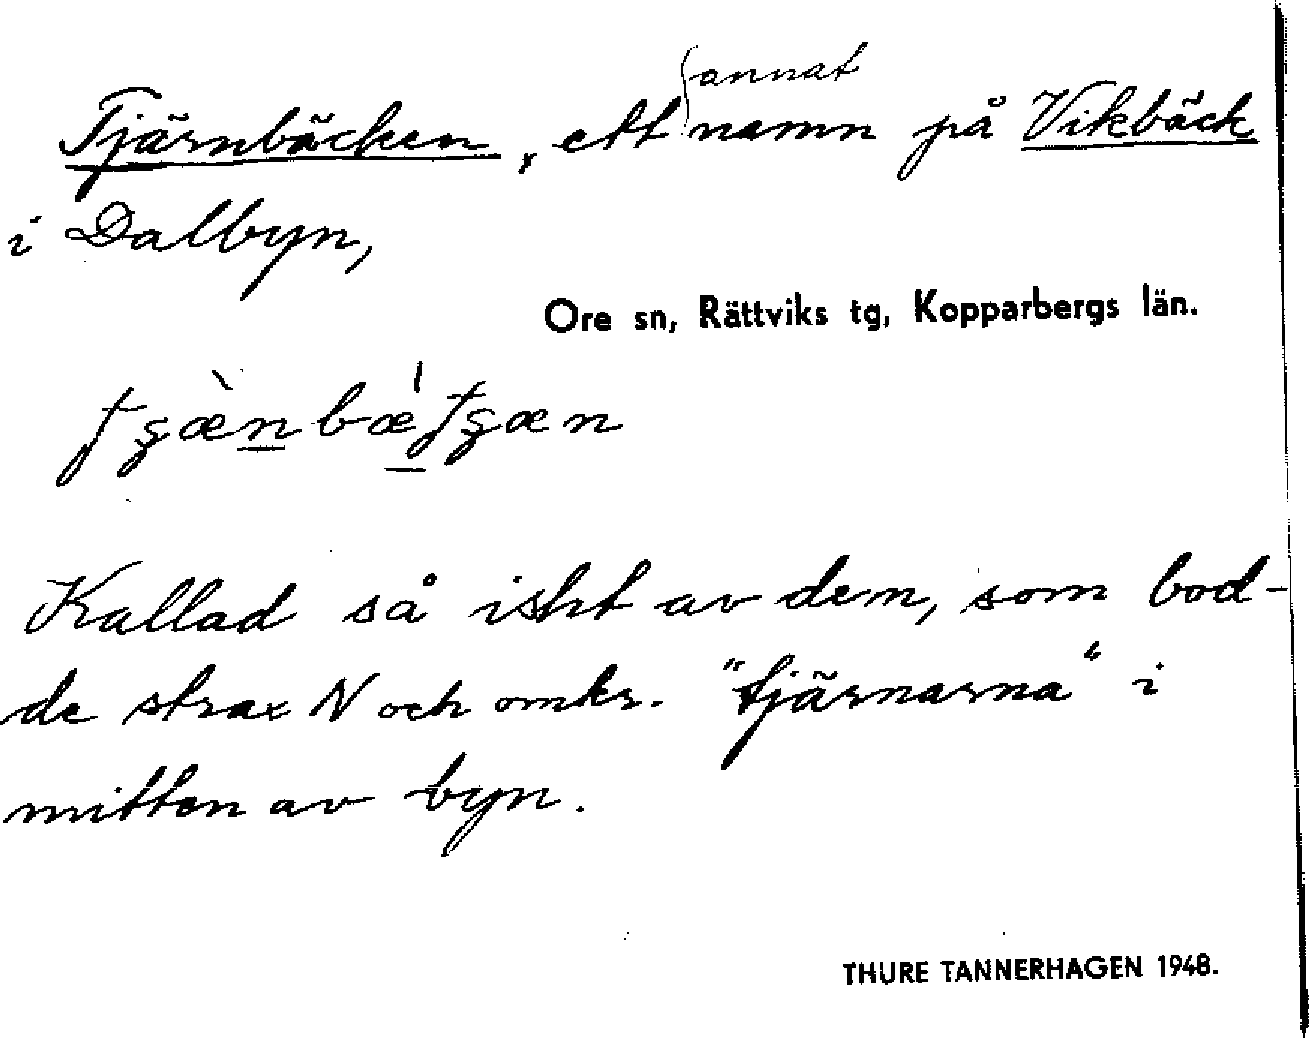 Tjärnbäcken, ett annat namn på Vikbäck
i Dalbyn,
Ore sn, Rättviks tg, Kopparbergs län.
Kallad så isht av dem, som bod-
de strax N och omkr. "tjärnarna" i
mitten av byn.
THURE TANNERHAGEN 1948.